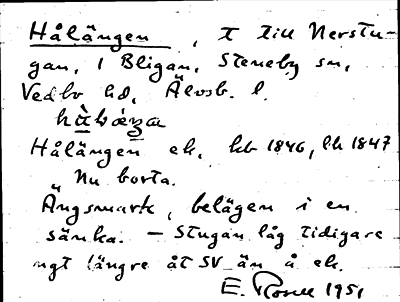 Hålängen, t till Nerstu-
gan, i Bligan, Steneby sn,
Vedbo hd, Älvsb. l.
Hålängen ek, hb 1846, lh 1847
Nu borta.
Ängsmark, belägen i en
sänka. – Stugan låg tidigare
ngt längre åt SV än å ek.
E. Rosell 1951